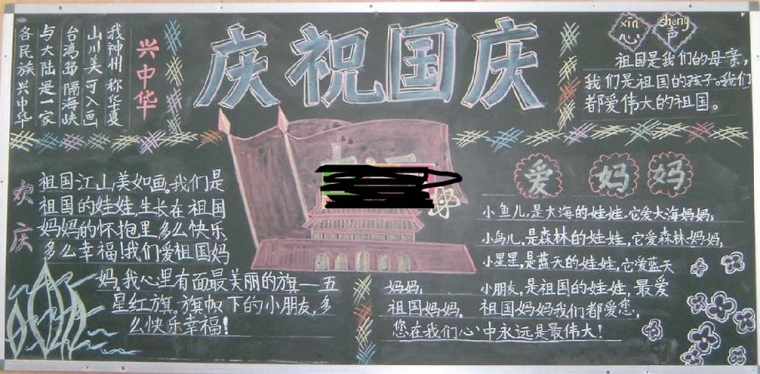 庆祝国庆
兴中华
我神州称华夏
山川美可入画
台湾岛隔海峡
与大陆是一家
各民族兴中华
xin sheng
心声
祖国是我们的母亲，
我们是祖国的孩子。我们
都爱伟大的祖国。
欢庆
祖国江山美如画，我们是
祖国的娃娃，生长在祖国
妈妈的怀抱里多么快乐
多么幸福！我们爱祖国妈
妈，我心里有面最美丽的旗——五
星红旗。旗帜下的小朋友，多
么快乐幸福！
爱妈妈
小鱼儿，是大海的娃娃，它爱大海妈妈，
小鸟儿，是森林的娃娃，它爱森林妈妈，
小星星，是蓝天的娃娃，它爱蓝天
妈妈， 小朋友，是祖国的娃娃，最爱
祖国妈妈，祖国妈妈我们都爱您，
您在我们心中永远是最伟大！